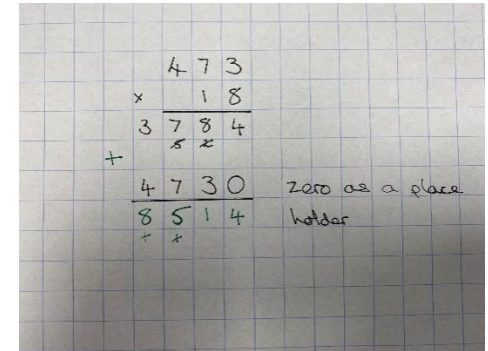 4 7 3
× 1 8
3 7 8 4
5 2
+
4 7 3 0 zero as a place
8 5 1 4 holder